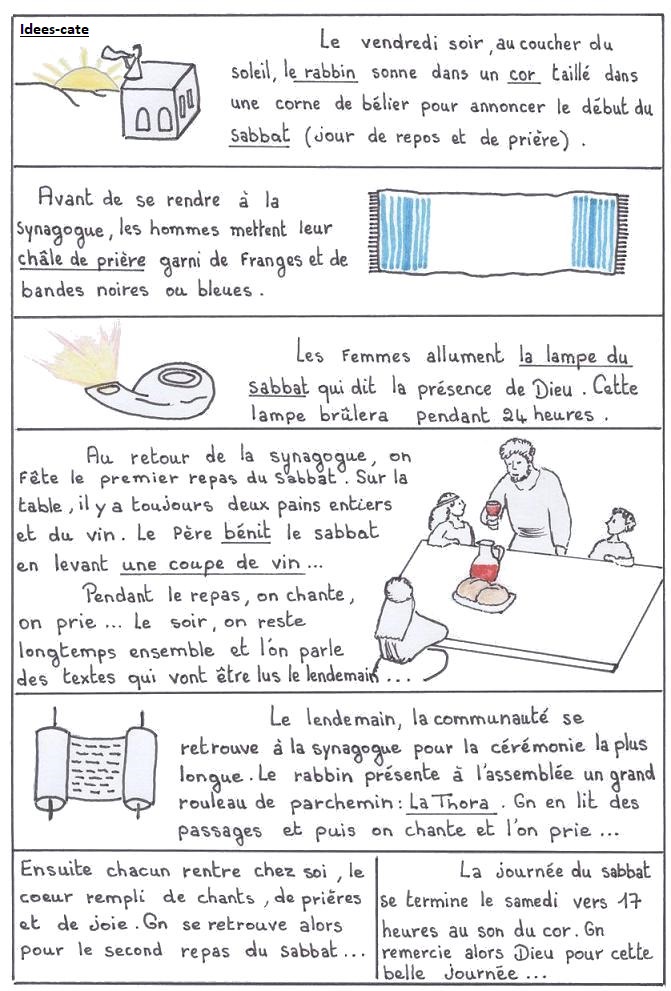 Idees-cate
Le vendredi soir, au coucher du
soleil, le rabbin sonne dans un cor taillé dans
une corne de bélier pour annoncer le début du
sabbat (jour de repos et de prière).
Avant de se rendre à la
synagogue, les hommes mettent leur
châle de prière garni de franges et de
bandes noires ou bleues.
Les femmes allument la lampe du
sabbat qui dit la présence de Dieu. Cette
lampe brûlera pendant 24 heures.
Au retour de la synagogue, on
fête le premier repas du sabbat. Sur la
table, il y a toujours deux pains entiers
et du vin. Le Père bénit le sabbat
en levant une coupe de vin...
Pendant le repas, on chante,
on prie... Le soir, on reste
longtemps ensemble et l'on parle
des textes qui vont être lus le lendemain...
Le lendemain, la communauté se
retrouve à la synagogue pour la cérémonie la plus
longue. Le rabbin présente à l'assemblée un grand
rouleau de parchemin: La Thora. On en lit des
passages et puis on chante et l'on prie...
Ensuite chacun rentre chez soi, le
coeur rempli de chants, de prières
et de joie. On se retrouve alors
pour le second repas du sabbat...
La journée du sabbat
se termine le samedi vers 17
heures au son du cor. On
remercie alors Dieu pour cette
belle journée...